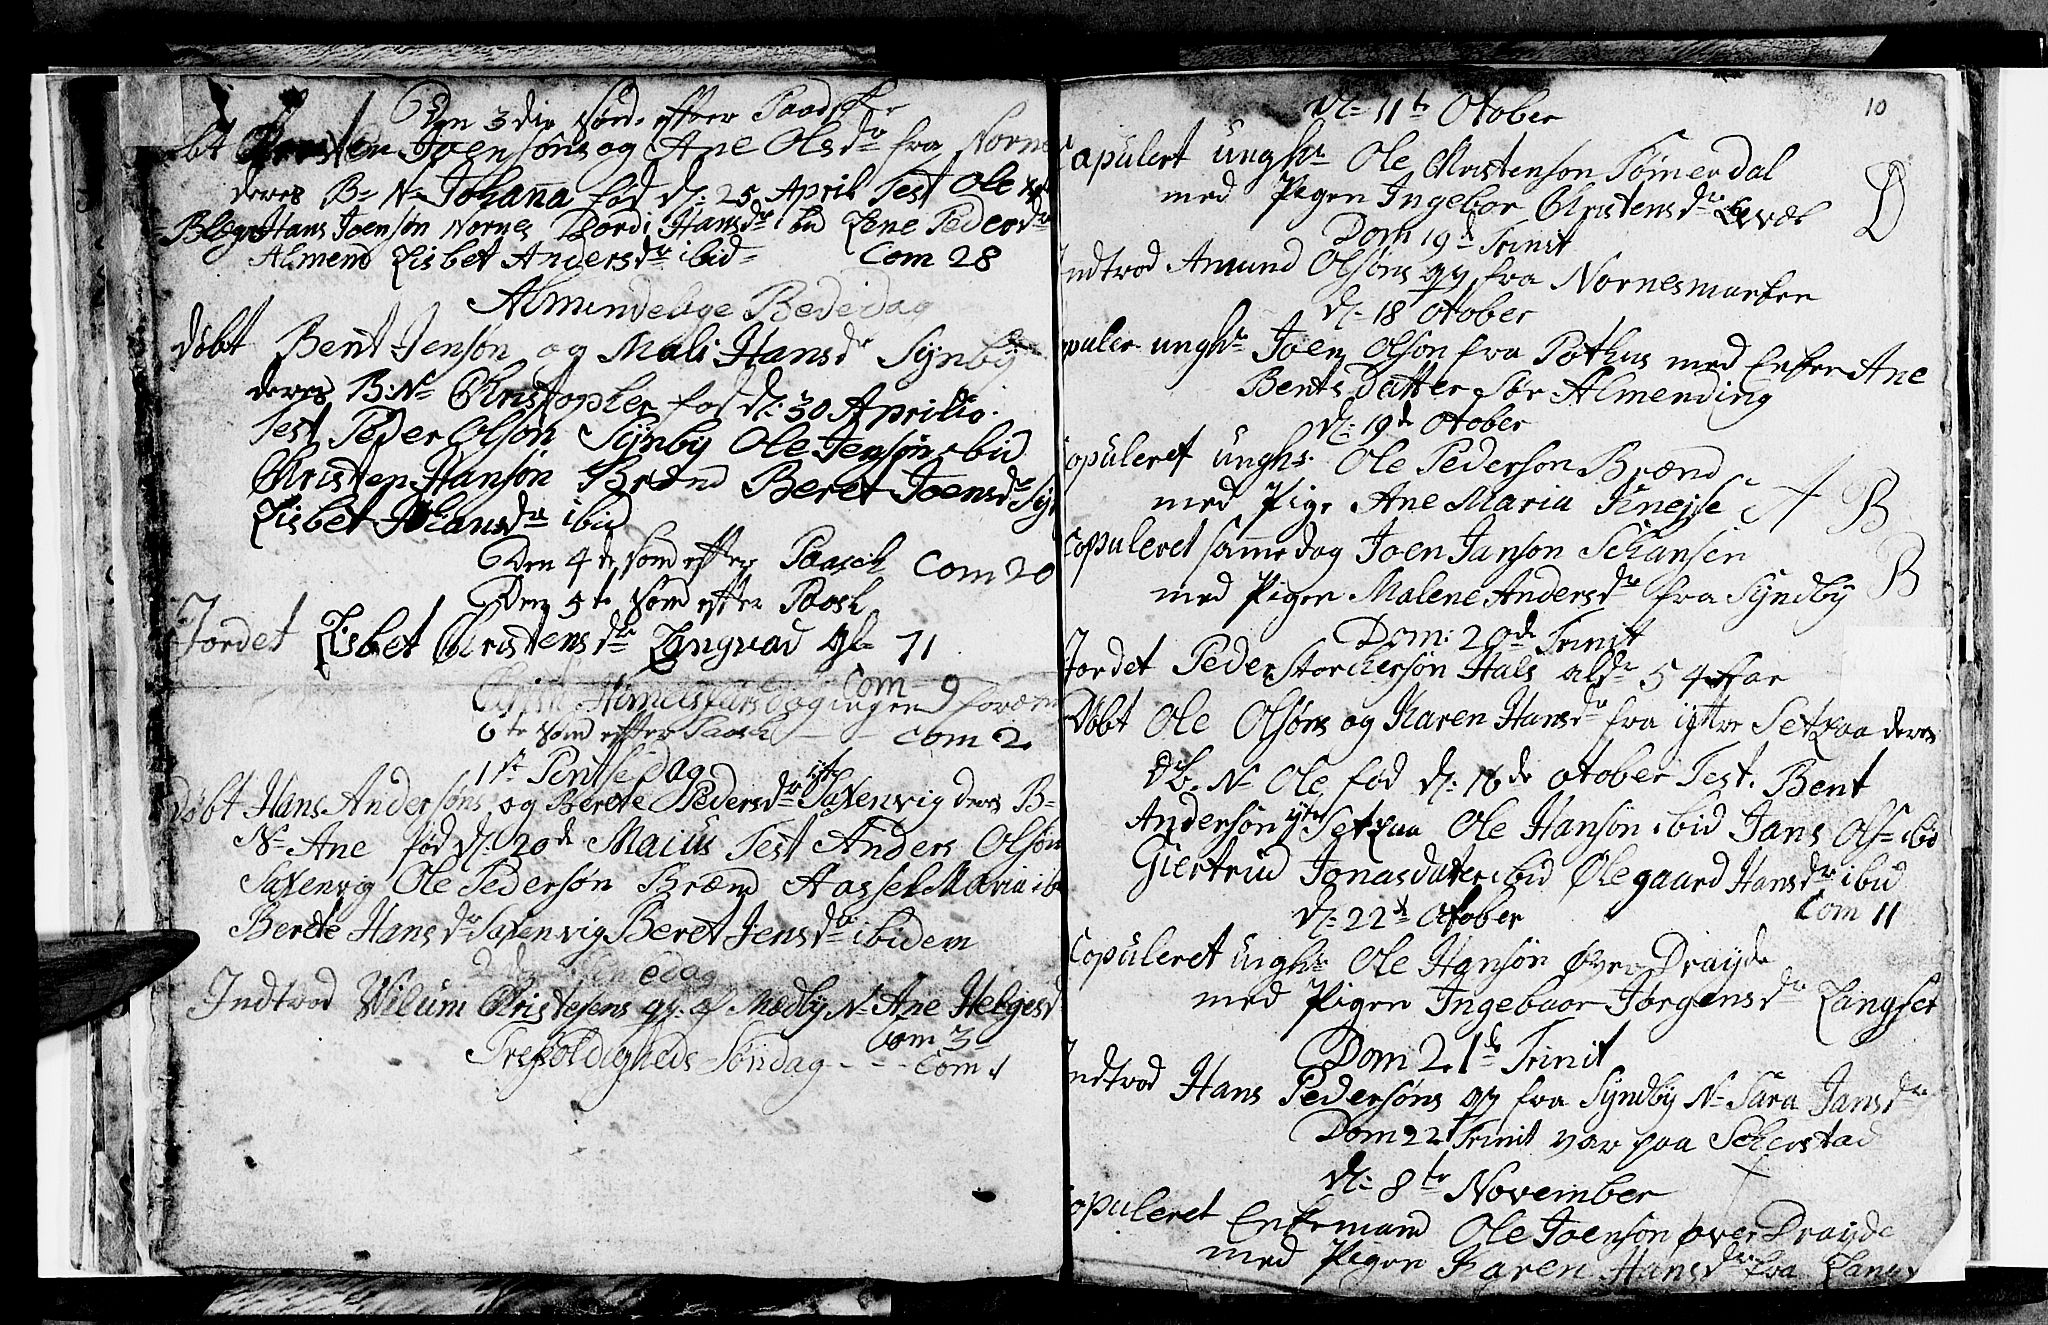 Den 3die Sønd. efter Paaske
Joensøns og Ane Olsdr fra Norne
deres B. N. Johana fød d: 25 April Test Ole
Hans Joensøn Nornes Dordi Hansdr ibid Lene Pedersdr
Almend Lisbet Andersdr ibid Com 28
Almindelige Bededag
døbt Bent Jensøn og Mali Hansdr Synby
deres B: N. Christopher fød d: 30 Aprilis.
Test Peder Olsøn Synby Ole Jensøn ibid
Christen Hansøn Brænd Beret Joensdr
Lisbet Johansdr ibid
Den 4de Sønd efter Paasch Com 20
Den 5te Sønd efter Paask
Jordet Lisbet Christensdr Langvad gl. 71
Christi Himmelfarsdag ingen Com 9
6te Sønd efter Paask - - Com 2
1st Pentsedag
døbt Hans Andersøns og Berete Pedersdr ytre Saxenvig deres B-
N- Ane fød d: 20de Maius Test Anders Olsøn
Saxenvig Ole Pedersøn Brænd Aassel Maria
Berete Hansdr Saxenvig Beret Jensdr ibidem
Indtrod Wilum Christensens qv. af Mædby N. Ane Helgesd
Com 3
Trefoldigheds Søndag - - - Com 1
10
d: 11te Otober
Capulert unghr Ole Christenson Tømerdal D
med Pigen Ingebor Christensdr
Dom 19de Trinit
Indtrod Amund Olsøns qv fra Nornesmarken
d: 18 Otober
unghr Joen Olson fra Pothus med Enken Ane
Bents Datter Sør Almending
d: 19de Otober
Copuleret unghr. Ole Pederson Brænd
med Pige Ane Maria Kneise A B
Copuleret samme dag Joen Janson Schansen
med Pigen Malene Andersdr fra Syndby B
Dom: 20de Trinit
Jordet Peder Storchersøn Hals aldr 54 Aar
Døbt Ole Olsøns og Karen Hansdr fra ytre Setzaa deres
B. N Ole fød d: 16de otober Test. Bent
Andersøn ytre Setzaa Ole Hansøn ibid Jans Ols ibid
Giertrud Jonasdater ibid Ølegaard Hansdr ibid
d: 22de Otober Com 11
Copuleret unghr Ole Hansøn øvre Drayde
med Pigen Ingeboor Jørgensdr Langset
Dom 21de Trinit
Indtrod Hans Pedersøns qv fra Syndby N. Sara Jansdr
Dom 22 Trinit var paa Schierstad
d: 8te November
Copuleret Enkemand Ole Joenson over Drayde
med Pigen Karen Hansdr fra